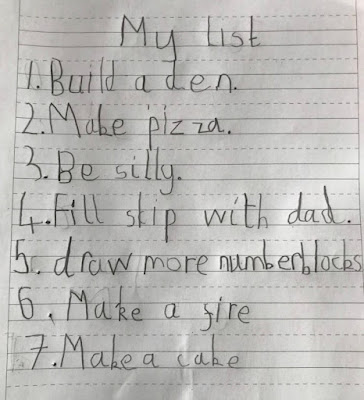 My list
1. Build a den.
2. Make pizza.
3. Be silly.
4. Fill skip with dad.
5. draw more numberblocks
6. Make a fire
7. Make a cake